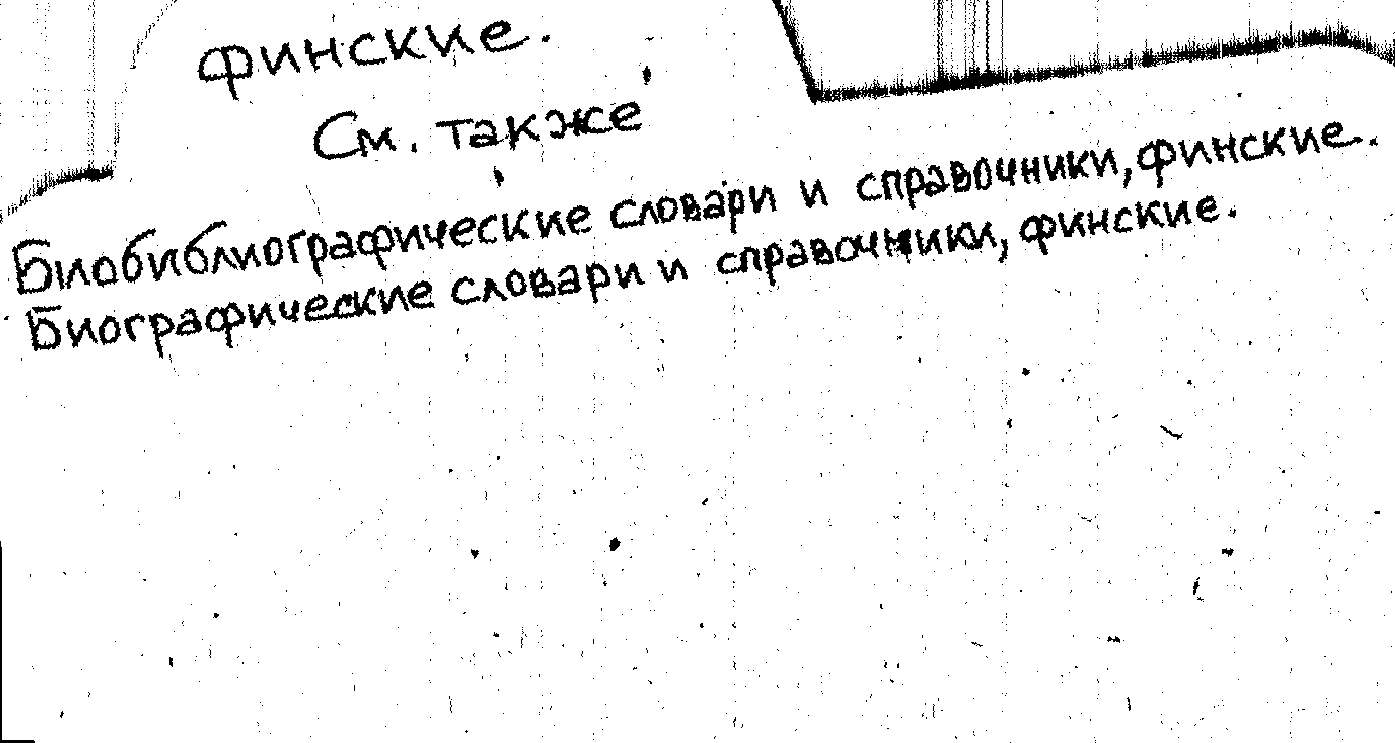 финские.
См. также
Билобиблиографические словари и справочники, финские.
Биографические словари и справочники, финские.